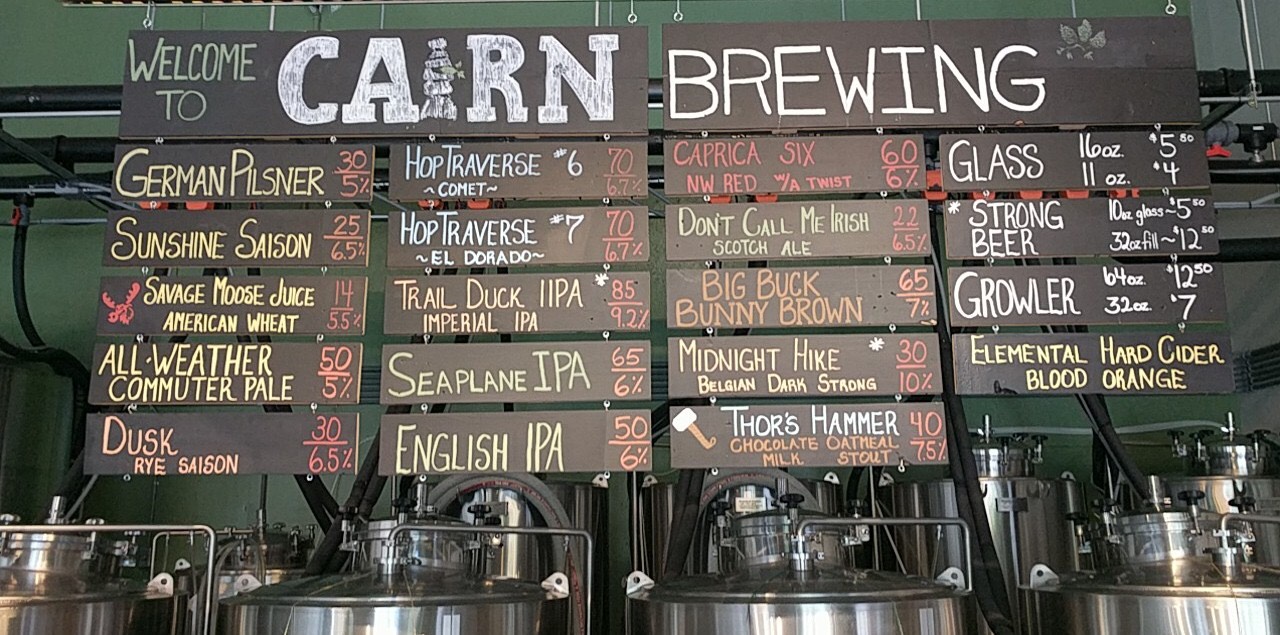 WELCOME TO CAIRN BREWING
GERMAN PILSNER 30 5%
SUNSHINE SAISON 25 6.5%
SAVAGE MOOSE JUICE 14
AMERICAN WHEAT 5.5%
ALL-WEATHER 50
COMMUTER PALE 5%
DUSK 30
RYE SAISON 6.5%
HOPTRAVERSE #6 70
~COMET~ 6.7%
HOPTRAVERSE #7 70
~EL DORADO~ 6.7%
TRAIL DUCK IIPA * 85
IMPERIAL IPA 9.2%
SEAPLANE IPA 65 6%
ENGLISH IPA 50 6%
CAPRICA SIX 60
NW RED W/A TWIST 6%
DON'T CALL ME IRISH 22
SCOTCH ALE 6.5%
BIG BUCK 65
BUNNY BROWN 7%
MIDNIGHT HIKE * 30
BELGIAN DARK STRONG 10%
THOR'S HAMMER 40
CHOCOLATE OATMEAL 7.5%
MILK STOUT
GLASS 16oz. $5.50
11 oz. $4
* STRONG 10oz glass~$5.50
BEER 32oz fill~$12.50
GROWLER 64oz. $12.50
32oz. $7
ELEMENTAL HARD CIDER
BLOOD ORANGE